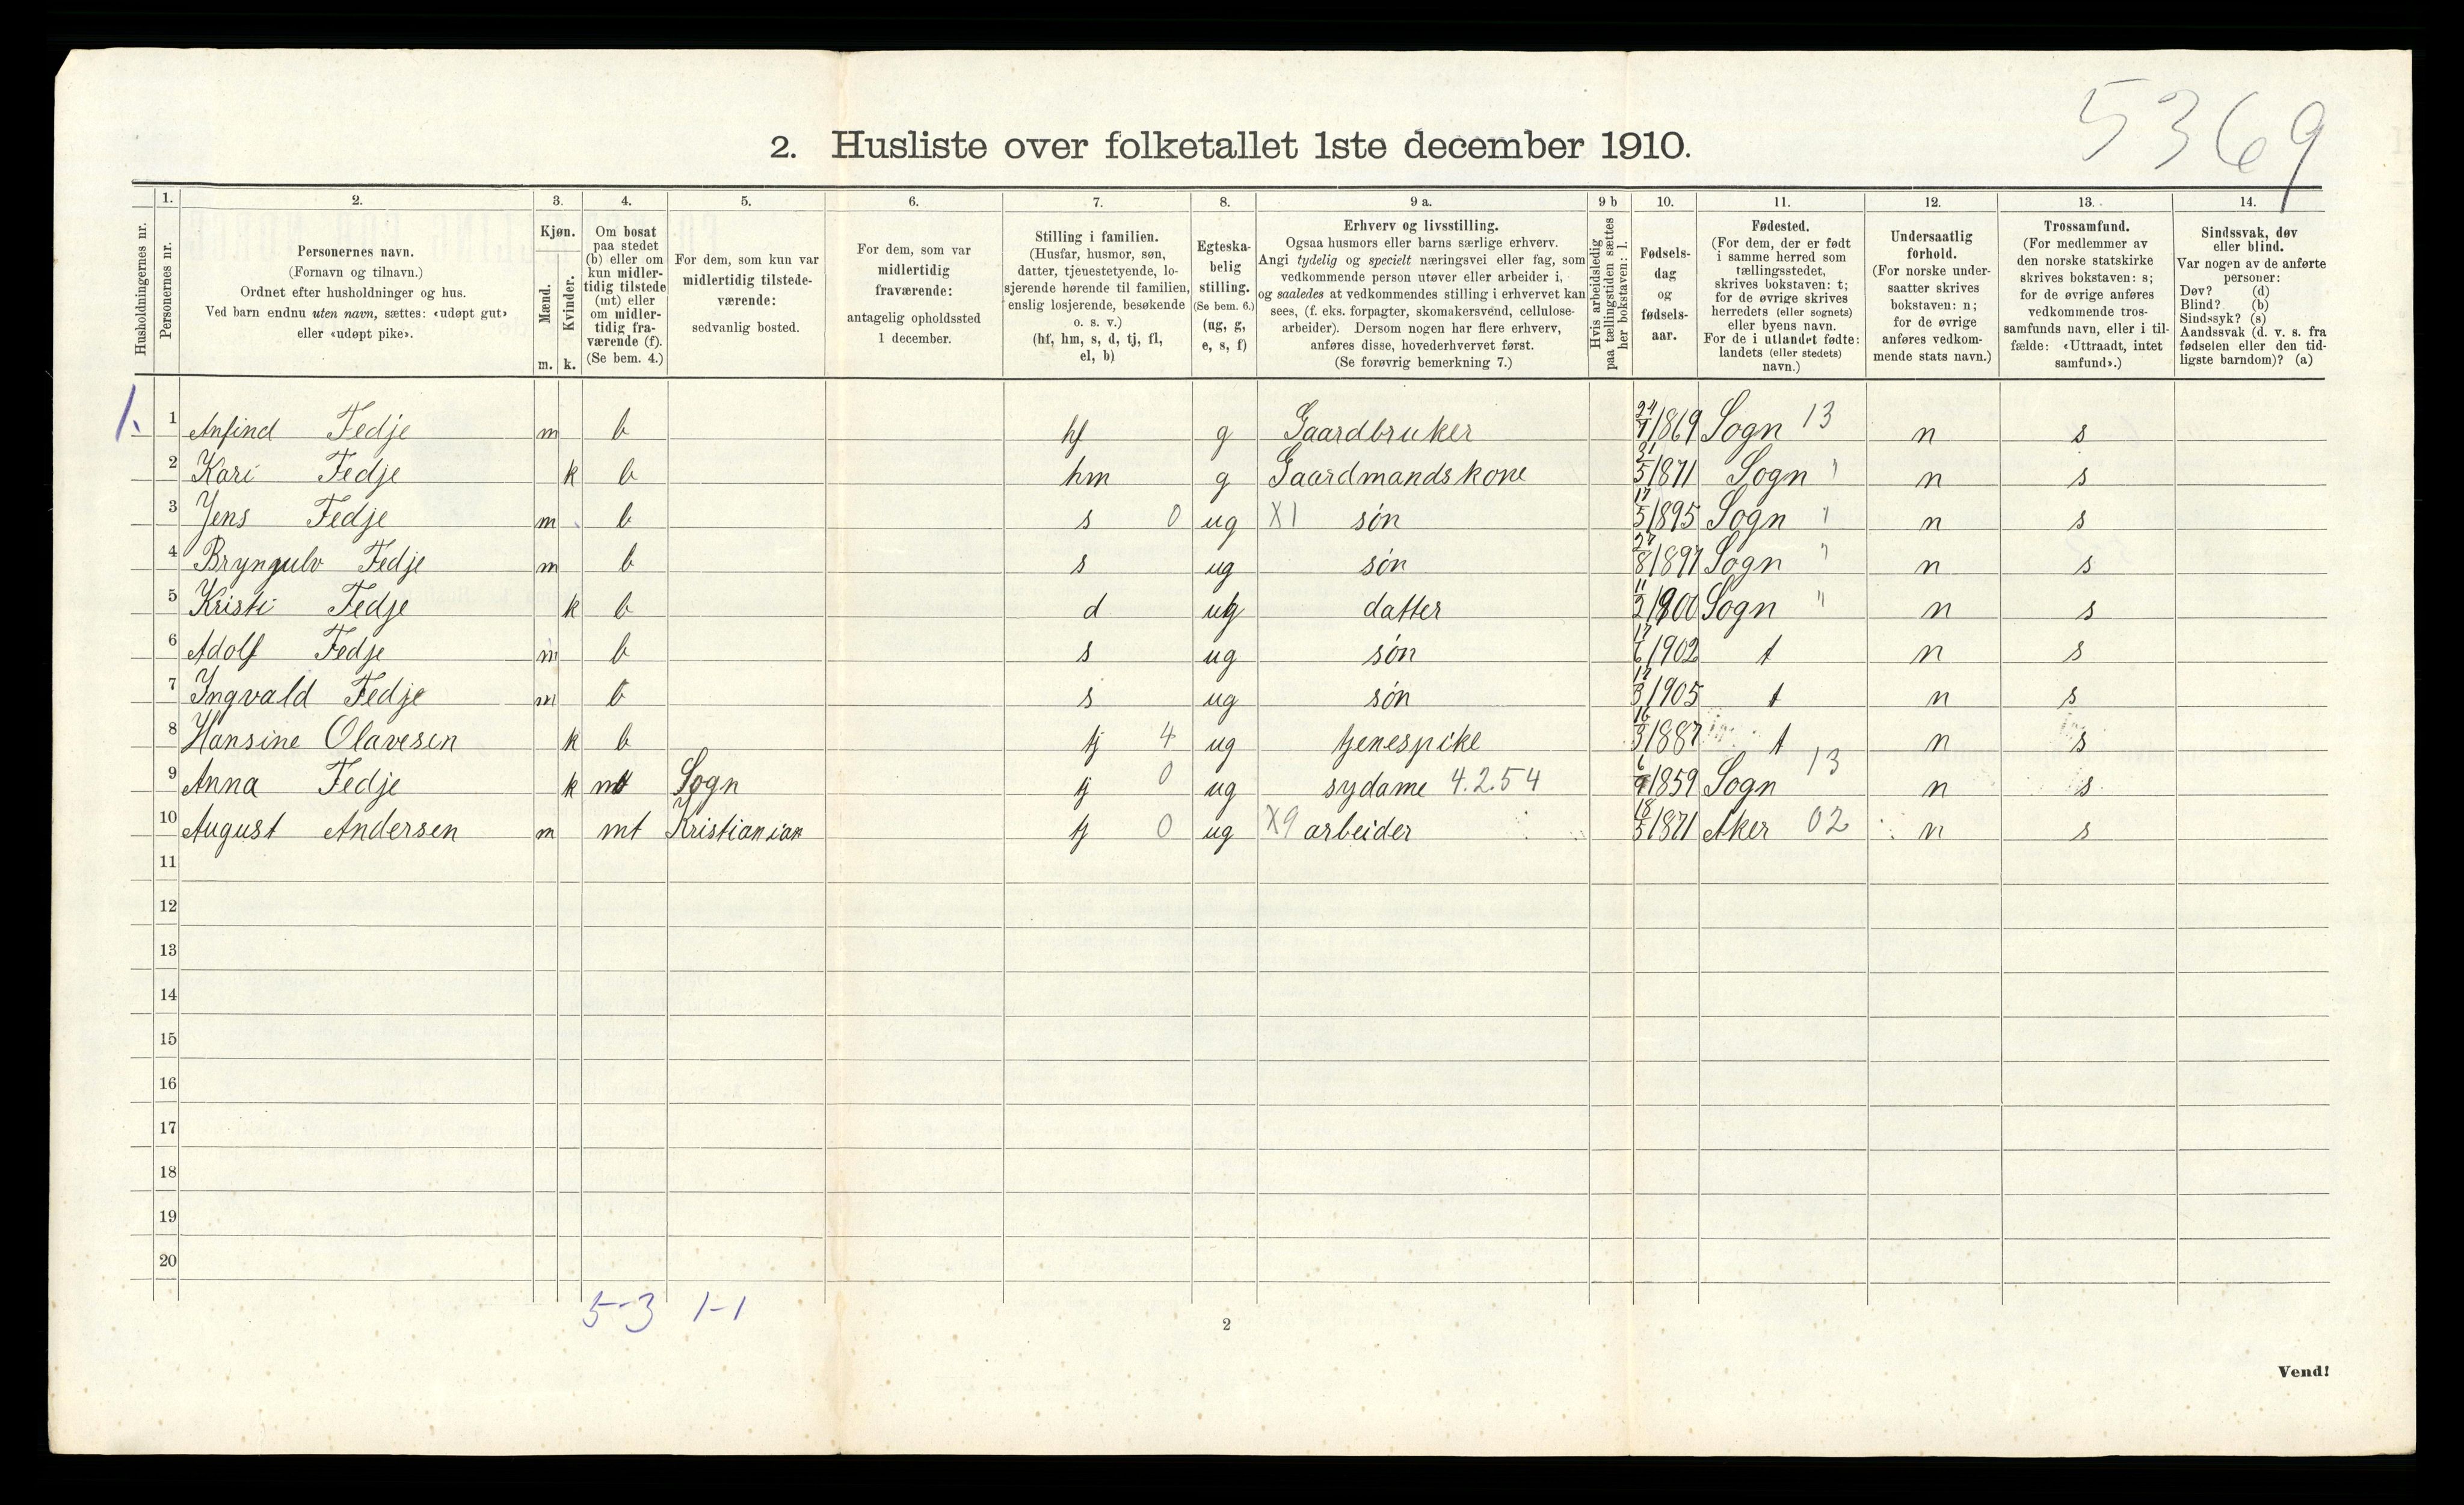 5369
2. Husliste over folketallet 1ste december 1910.
Husholdningernes nr.
1.
Personernes nr.
2.
Personernes navn.
(Fornavn og tilnavn.)
Ordnet efter husholdninger og hus.
Ved barn endnu uten navn, sættes: «udøpt gut»
eller «udøpt pike».
3.
Kjøn.
Mænd.
Kvinder.
m. k.
4.
Om bosat
paa stedet
(b) eller om
kun midler-
tidig tilstede
(mt) eller
om midler-
tidig fra-
værende (f).
(Se bem. 4.)
5.
For dem, som kun var
midlertidig tilstede-
værende:
sedvanlig bosted.
6.
For dem, som var
midlertidig
fraværende:
antagelig opholdssted
1 december.
7.
Stilling i familien.
(Husfar, husmor, søn,
datter, tjenestetyende, lo-
sjerende hørende til familien,
enslig losjerende, besøkende
o. s. v.)
(hf, hm, s, d, tj, fl,
el, b)
8.
Egteska-
belig
stilling.
(Se bem. 6.)
(ug, g,
e, s, f)
9 a.
Erhverv og livsstilling.
Ogsaa husmors eller barns særlige erhverv.
Angi tydelig og specielt næringsvei eller fag, som
vedkommende person utøver eller arbeider i,
og saaledes at vedkommendes stilling i erhvervet kan
sees, (f. eks. forpagter, skomakersvend, cellulose-
arbeider). Dersom nogen har flere erhverv,
anføres disse, hovederhvervet først.
(Se forøvrig bemerkning 7.)
9 b
Hvis arbeidsledig
paa tællingstiden sættes
her bokstaven: l.
10.
Fødsels-
dag
og
fødsels-
aar.
11.
Fødested.
(For dem, der er født
i samme herred som
tællingsstedet,
skrives bokstaven: t;
for de øvrige skrives
herredets (eller sognets)
eller byens navn.
For de i utlandet fødte:
landets (eller stedets)
navn.)
12.
Undersaatlig
forhold.
(For norske under-
saatter skrives
bokstaven: n;
for de øvrige
anføres vedkom-
mende stats navn.)
13.
Trossamfund.
(For medlemmer av
den norske statskirke
skrives bokstaven: s;
for de øvrige anføres
vedkommende tros-
samfunds navn, eller i til-
fælde: «Uttraadt, intet
samfund».)
14.
Sindssvak, døv
eller blind.
Var nogen av de anførte
personer:
Døv? (d)
Blind? (b)
Sindssyk? (s)
Aandssvak (d. v. s. fra
fødselen eller den tid-
ligste barndom)? (a)
1. 1 Anfind Fedje m b hf g Gaardbruker 24/7 1869 Sogn 13 n s
2 Kari Fedje k b hm g Gaardmandskone 31/5 1871 Sogn " n s
3 Jens Fedje m b s 0 ug X1 søn 17/5 1895 Sogn " n s
4 Bryngulv Fedje m b s ug søn 27/8 1897 Sogn " n s
5 Kristi Fedje k b d ug datter 11/2 1900 Sogn " n s
6 Adolf Fedje m b s ug søn 17/6 1902 t n s
7 Ingvald Fedje m b s ug søn 12/3 1905 t n s
8 Hansine Olavesen k b tj 4 ug tjenespike 16/3 1887 t n s
9 Anna Fedje k mt Sogn tj 0 ug sydame 4.2.54 6/9 1859 Sogn 13 n s
10 August Andersen m mt Kristianian tj 0 ug X9 arbeider 18/5 1871 Aker 02 n s
11
12
13
14
15
16
17
18
19
20
5-3 1-1
2
Vend!